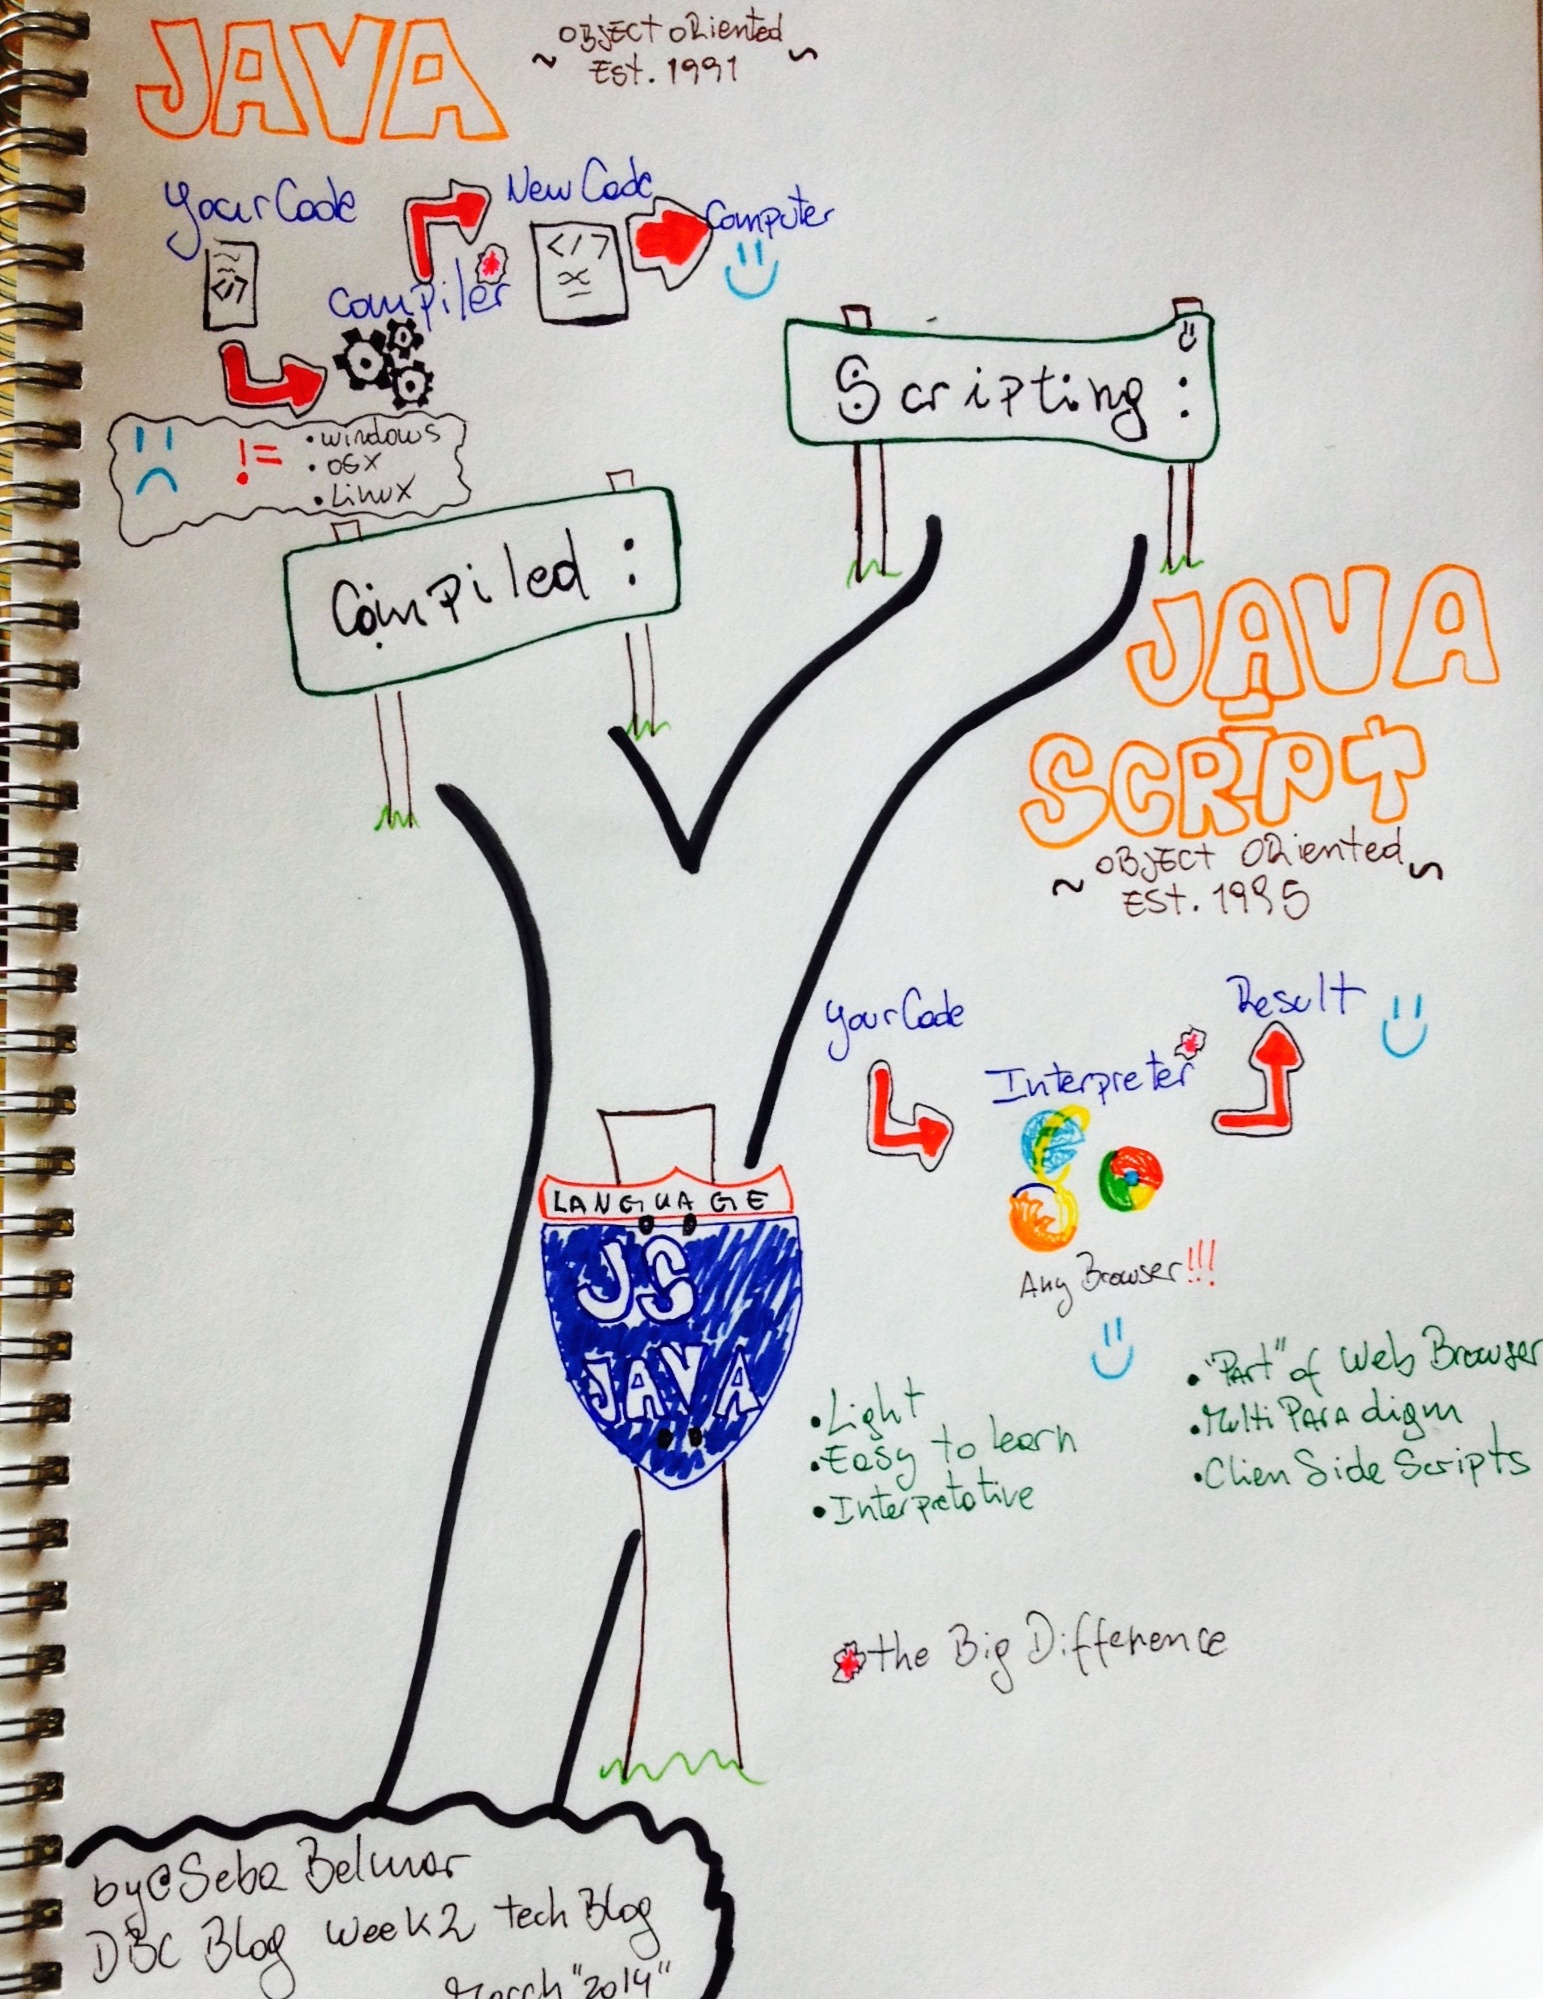 JAVA
~ OBJECT ORiented ~
Est. 1991
Your Code
New Code
Computer
</>
</>
Compiler
!=
• Windows
• OSX
• Linux
Scripting :
Compiled :
JAVA
SCRIPT
~ OBJECT ORiented ~
EST. 1995
Your Code
Result
Interpreter
Any Browser!!!
LANGUAGE
JS
JAVA
• Light
• Easy to learn
• Interpretative
• "Part" of Web Browser
• Multi PARAdigm
• Clien Side Scripts
the Big Difference
by @Seba Belmar
DBC Blog Week 2 tech Blog
March "2014"